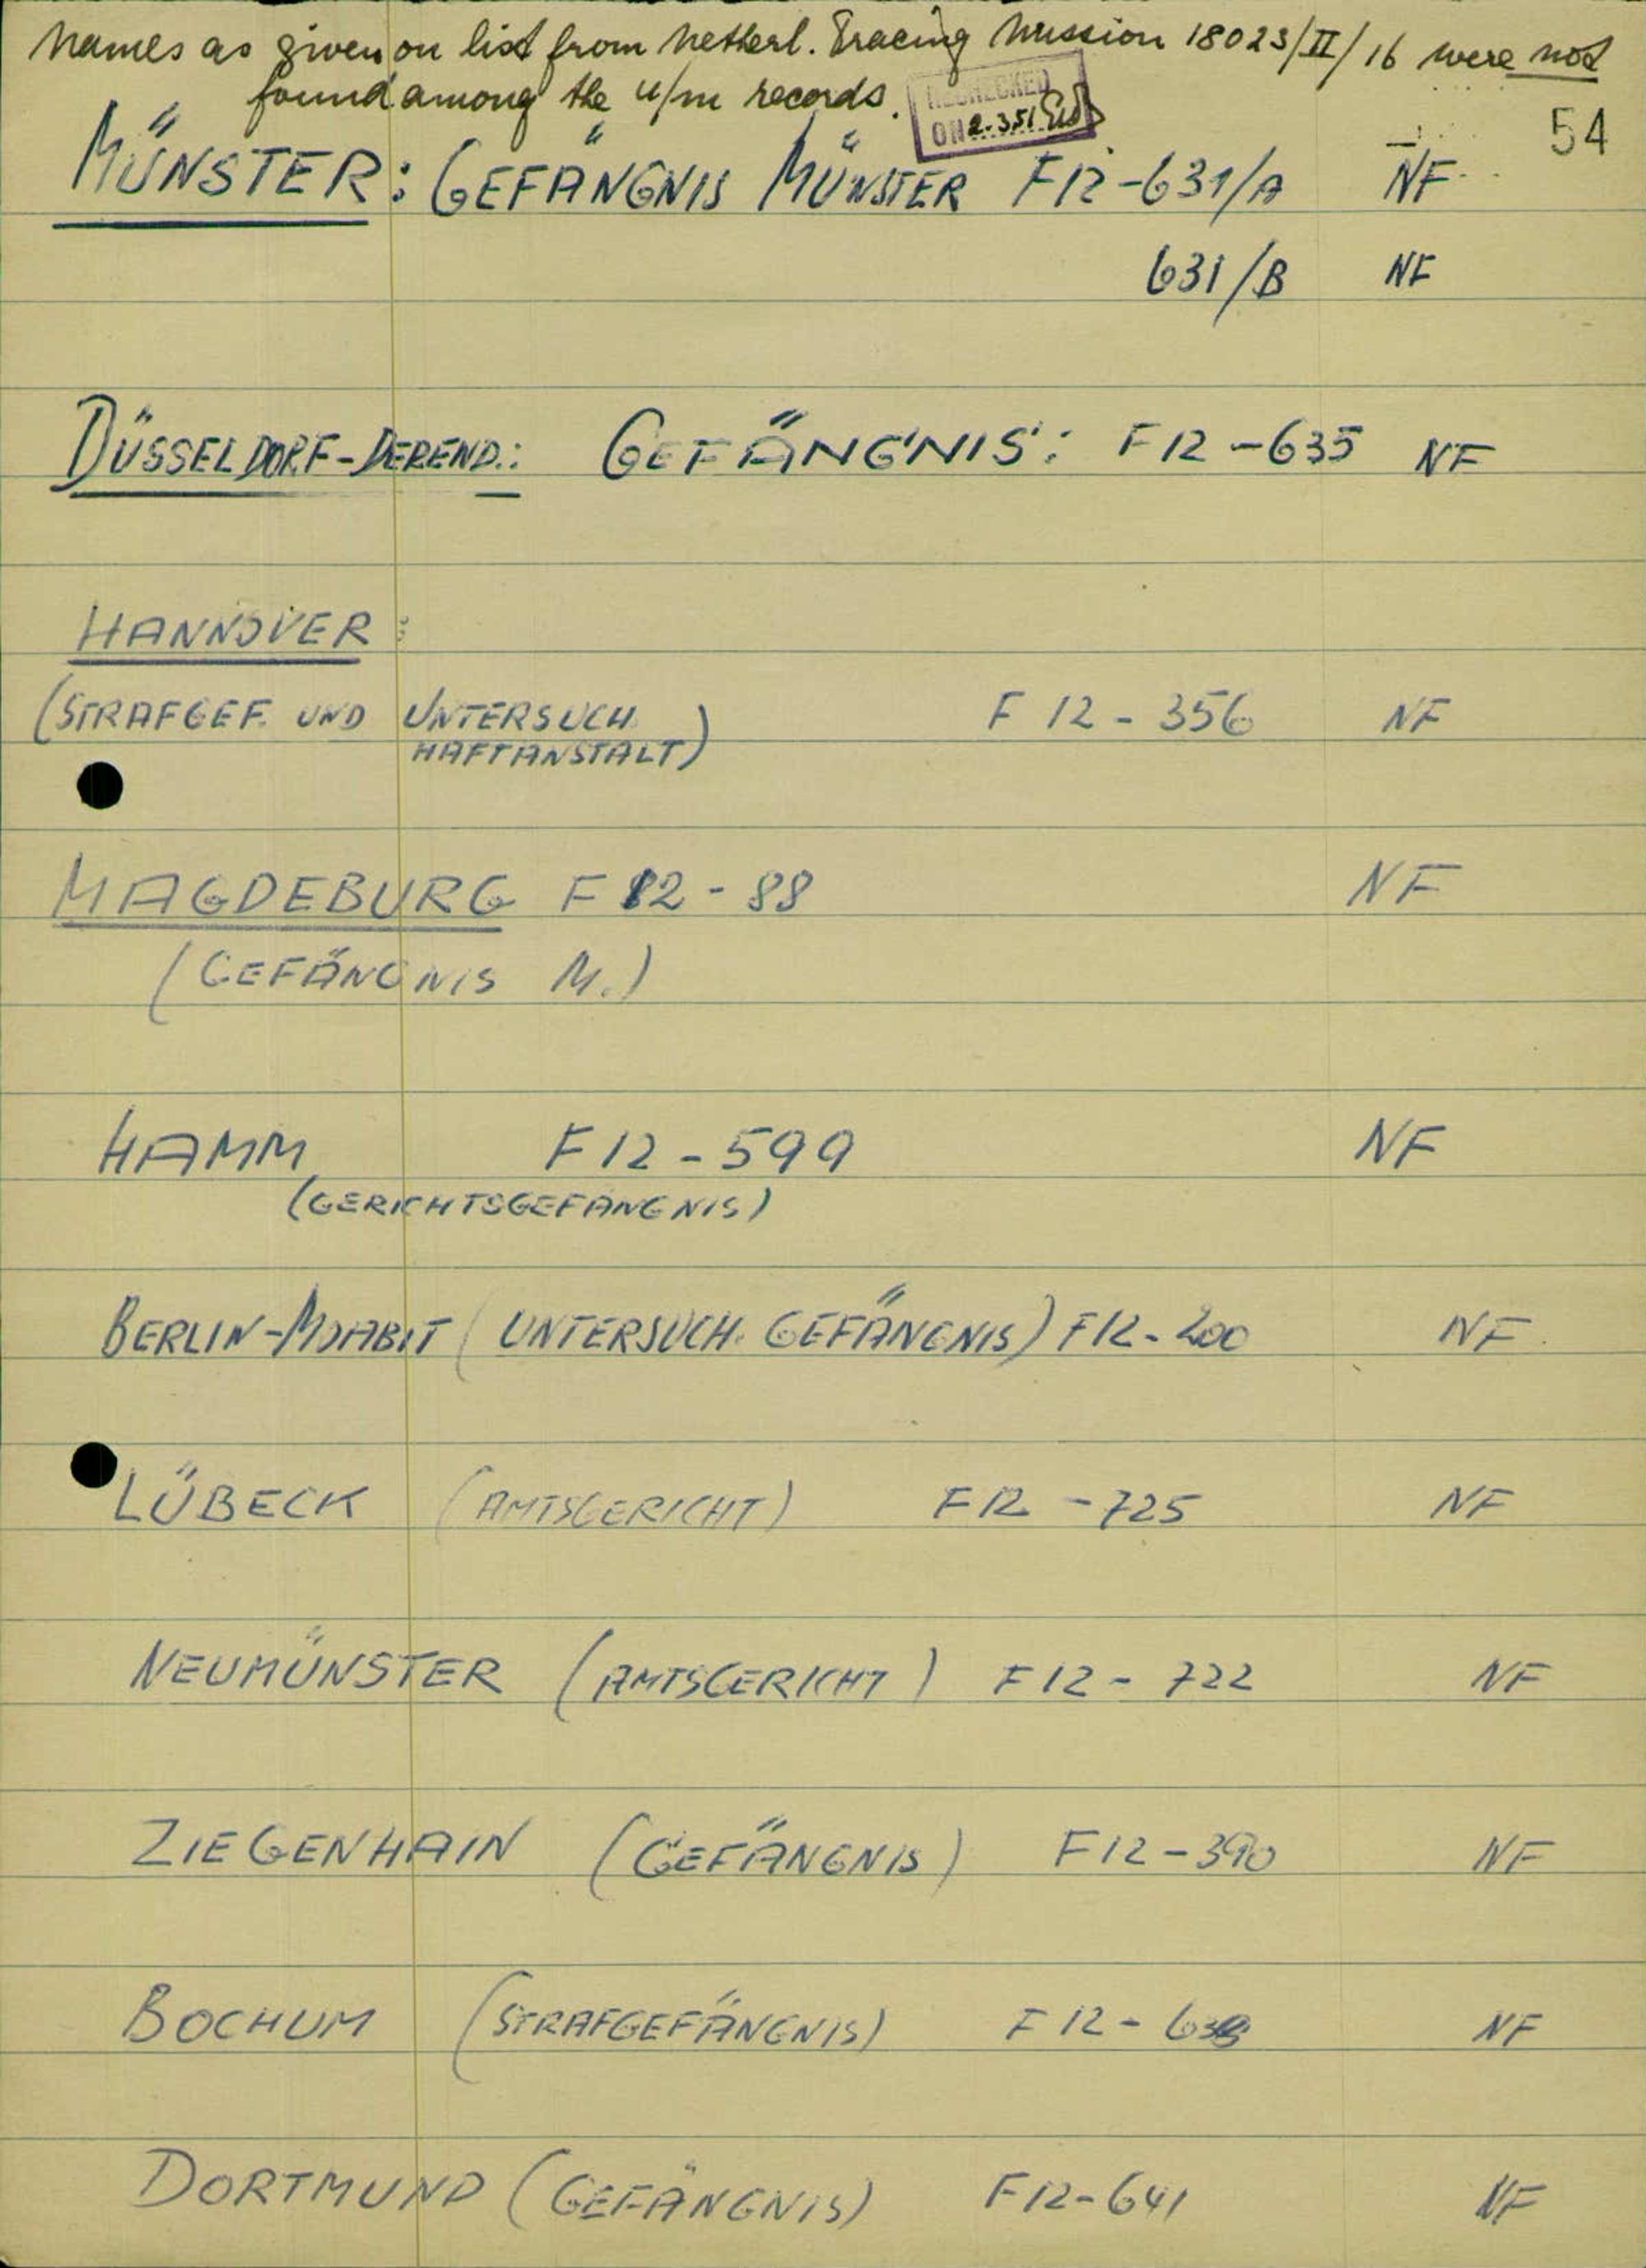 Names as given on list from Netherl. Tracing Mission 18023/II/16 were not
found among the u/m records.
RECHECKED
ON 2.3.51
54
MÜNSTER: GEFÄNGNIS MÜNSTER F12-631/A NF
631/B NF
DÜSSELDORF-DEREND.: GEFÄNGNIS: F12-635 NF
HANNOVER:
(STRAFGEF. UND UNTERSUCH. F 12-356 NF
HAFTANSTALT)
MAGDEBURG F 12-88 NF
(GEFÄNGNIS M.)
HAMM F12-599 NF
(GERICHTSGEFANGNIS)
BERLIN-MOABIT (UNTERSUCH. GEFÄNGNIS) F12-200 NF
LÜBECK (AMTSGERICHT) F12-725 NF
NEUMÜNSTER (AMTSGERICHT) F12-722 NF
ZIEGENHAIN (GEFÄNGNIS) F12-390 NF
BOCHUM (STRAFGEFÄNGNIS) F12- NF
DORTMUND (GEFÄNGNIS) F12-641 NF